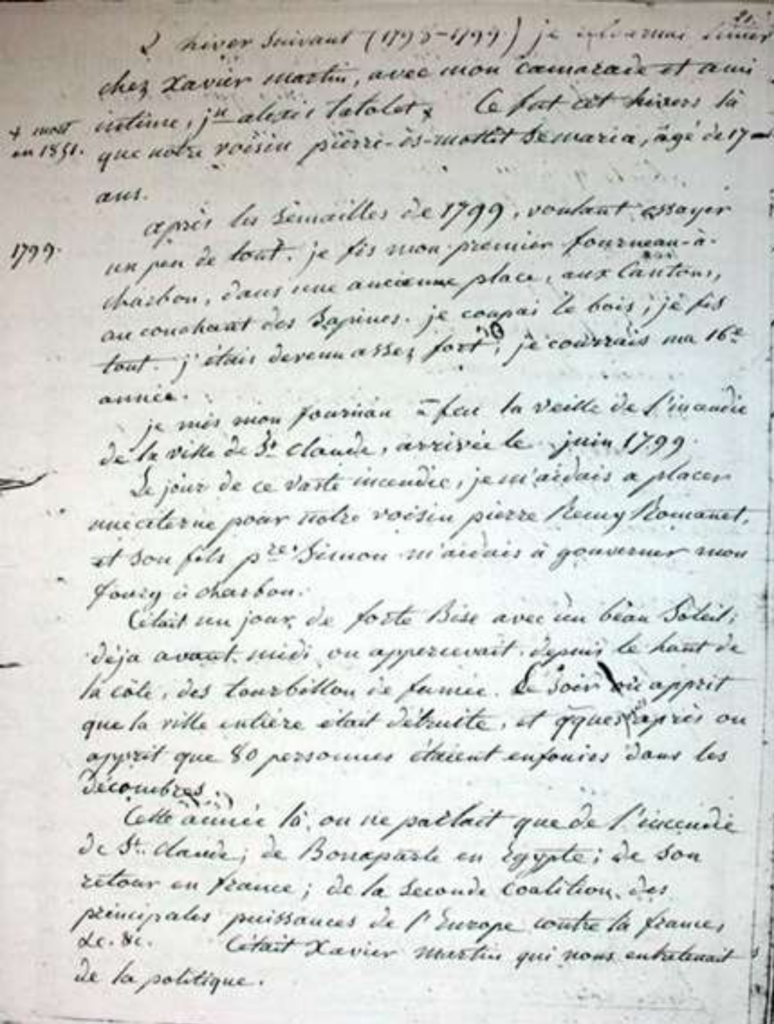 21.
L'hiver suivant (1798-1799) je
chez Xavier martin, avec mon camarade et ami
intime, jn alexis tatolet x Ce fut cet hivers là
x mort
en 1851.
que notre voisin pierre-is-mottet se maria, âgé de 17
ans.
après les semailles de 1799, voulant essayer
1799.
un peu de tout. je fis mon premier fourneau-à-
charbon, dans une ancienne place, aux Cantons,
au couchant des Sapines. je coupai le bois; je fis
tout. j'étais devenu assez fort; je courrais ma 16e
année.
je mis mon fournau à feu la veille de l'incendie
de la ville de St Claude, arrivée le juin 1799.
Le jour de ce vaste incendie, je m'aidais a placer
une citerne pour notre voisin pierre Remy Romanet,
et son fils pre Simon m'aidais à gouverner mon
fourg à charbon.
C'était un jour de forte Bise avec un beau Soleil;
déja avant midi on appercevait, depuis le haut de
la côte, des tourbillon de fumée. Le soir on apprit
que la ville entière était détruite, et qques après on
apprit que 80 personnes étaient enfouies dans les
décombres.
Cette année là, on ne parlait que de l'incendie
de St. Claude; de Bonaparte en Egypte; de son
retour en france; de la seconde coalition des
principales puissances de l'Europe contre la france,
&c. &c. C'était Xavier martin qui nous entretenait
de la politique.